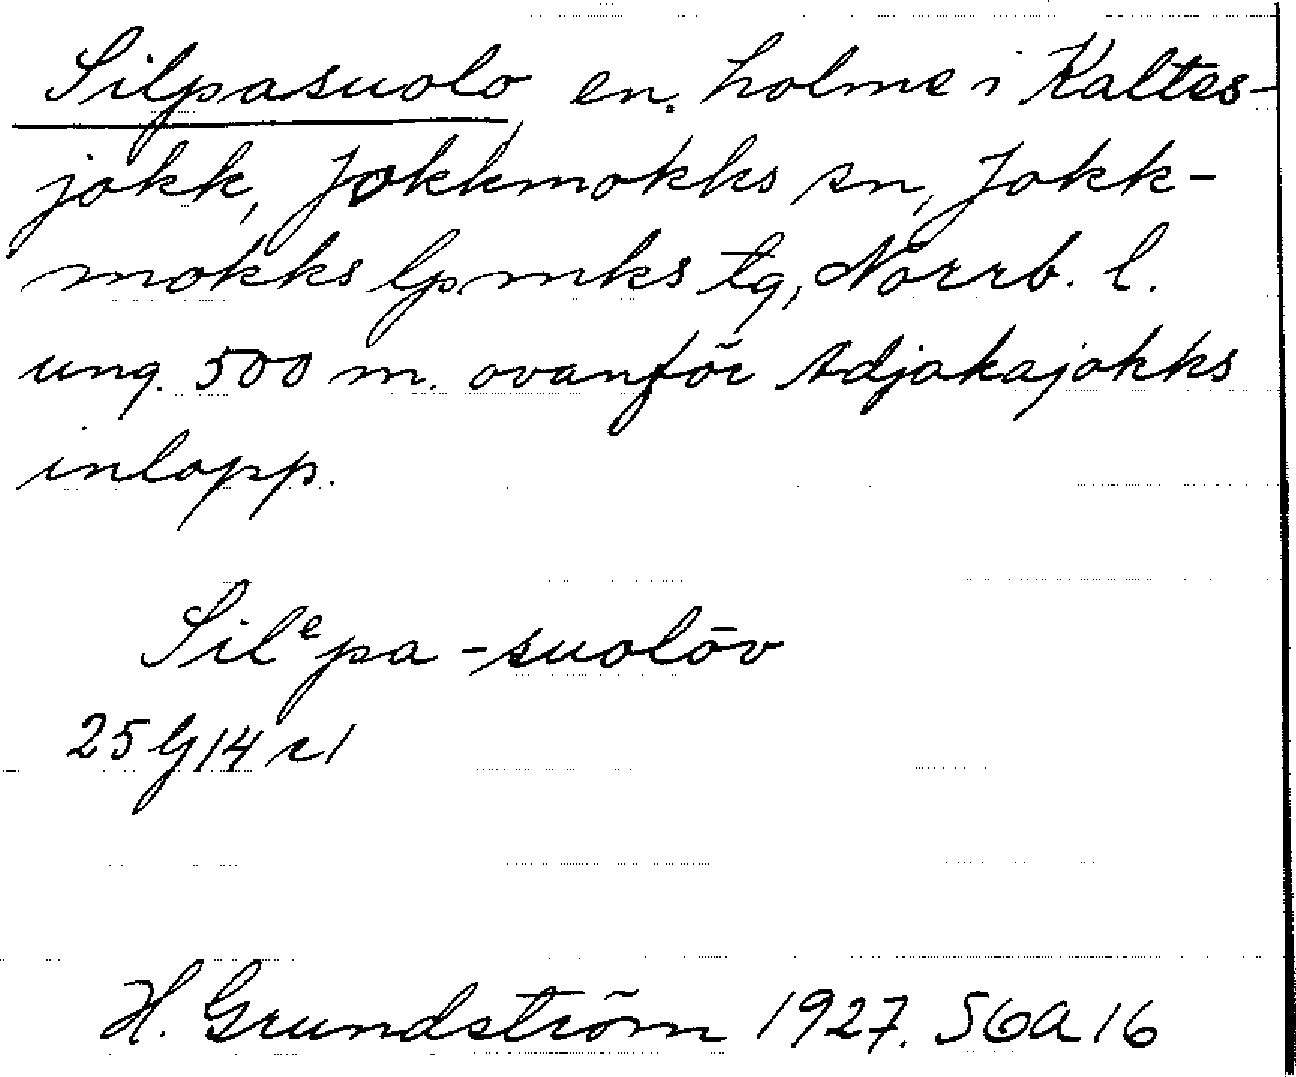 Silpasuolo en. holme i Kaltes-
jokk, Jokkmokks sn, Jokk-
mokks lpmks tg, Norrb. l.
ung. 500 m. ovanför Adjakajokks
inlopp.
Silᵉpa-suolōv
25 G 14 c 1
H. Grundström 1927. S6A16